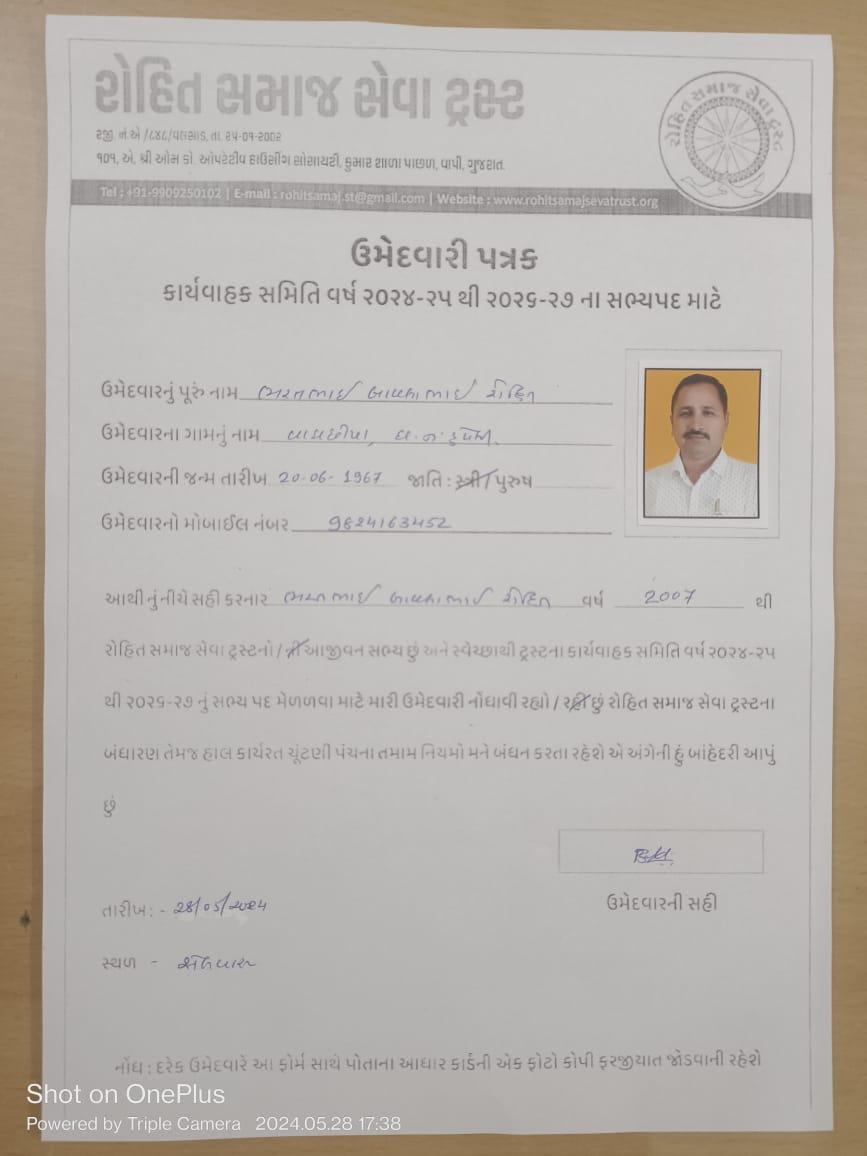 રોહિત સમાજ સેવા ટ્રસ્ટ
રોહિત સમાજ સેવા ટ્રસ્ટ
રજી. નં. એ /૮૪૮/વલસાડ, તા. ૨૫-૦૧-૨૦૦૨
૧૦૧, એ. શ્રી ઓમ કો. ઓપરેટીવ હાઉસીંગ સોસાયટી, કુમાર શાળા પાછળ, વાપી, ગુજરાત.
Tel : +91-9909250102 | E-mail : rohitsamaj.st@gmail.com | Website : www.rohitsamajsevatrust.org
ઉમેદવારી પત્રક
કાર્યવાહક સમિતિ વર્ષ ૨૦૨૪-૨૫ થી ૨૦૨૬-૨૭ ના સભ્યપદ માટે
ઉમેદવારનું પૂરું નામ ભરતભાઈ રોહિત
ઉમેદવારના ગામનું નામ
ઉમેદવારની જન્મ તારીખ 20-06-1967 જાતિ : સ્ત્રી/પુરુષ
ઉમેદવારનો મોબાઈલ નંબર 9824163452
આથી નું નીચે સહી કરનાર ભરતભાઈ રોહિત વર્ષ 2007 થી
રોહિત સમાજ સેવા ટ્રસ્ટનો / ની આજીવન સભ્ય છું અને સ્વેચ્છાથી ટ્રસ્ટના કાર્યવાહક સમિતિ વર્ષ ૨૦૨૪-૨૫
થી ૨૦૨૬-૨૭ નું સભ્ય પદ મેળળવા માટે મારી ઉમેદવારી નોંધાવી રહ્યો / રહી છું રોહિત સમાજ સેવા ટ્રસ્ટના
બંધારણ તેમજ હાલ કાર્યરત ચૂંટણી પંચના તમામ નિયમો મને બંધન કરતા રહેશે એ અંગેની હું બાંહેદરી આપું
છું
ઉમેદવારની સહી
તારીખ: - 28/05/2024
સ્થળ -
નોંધ : દરેક ઉમેદવારે આ ફોર્મ સાથે પોતાના આધાર કાર્ડની એક ફોટો કોપી ફરજીયાત જોડવાની રહેશે
Shot on OnePlus
Powered by Triple Camera 2024.05.28 17:38